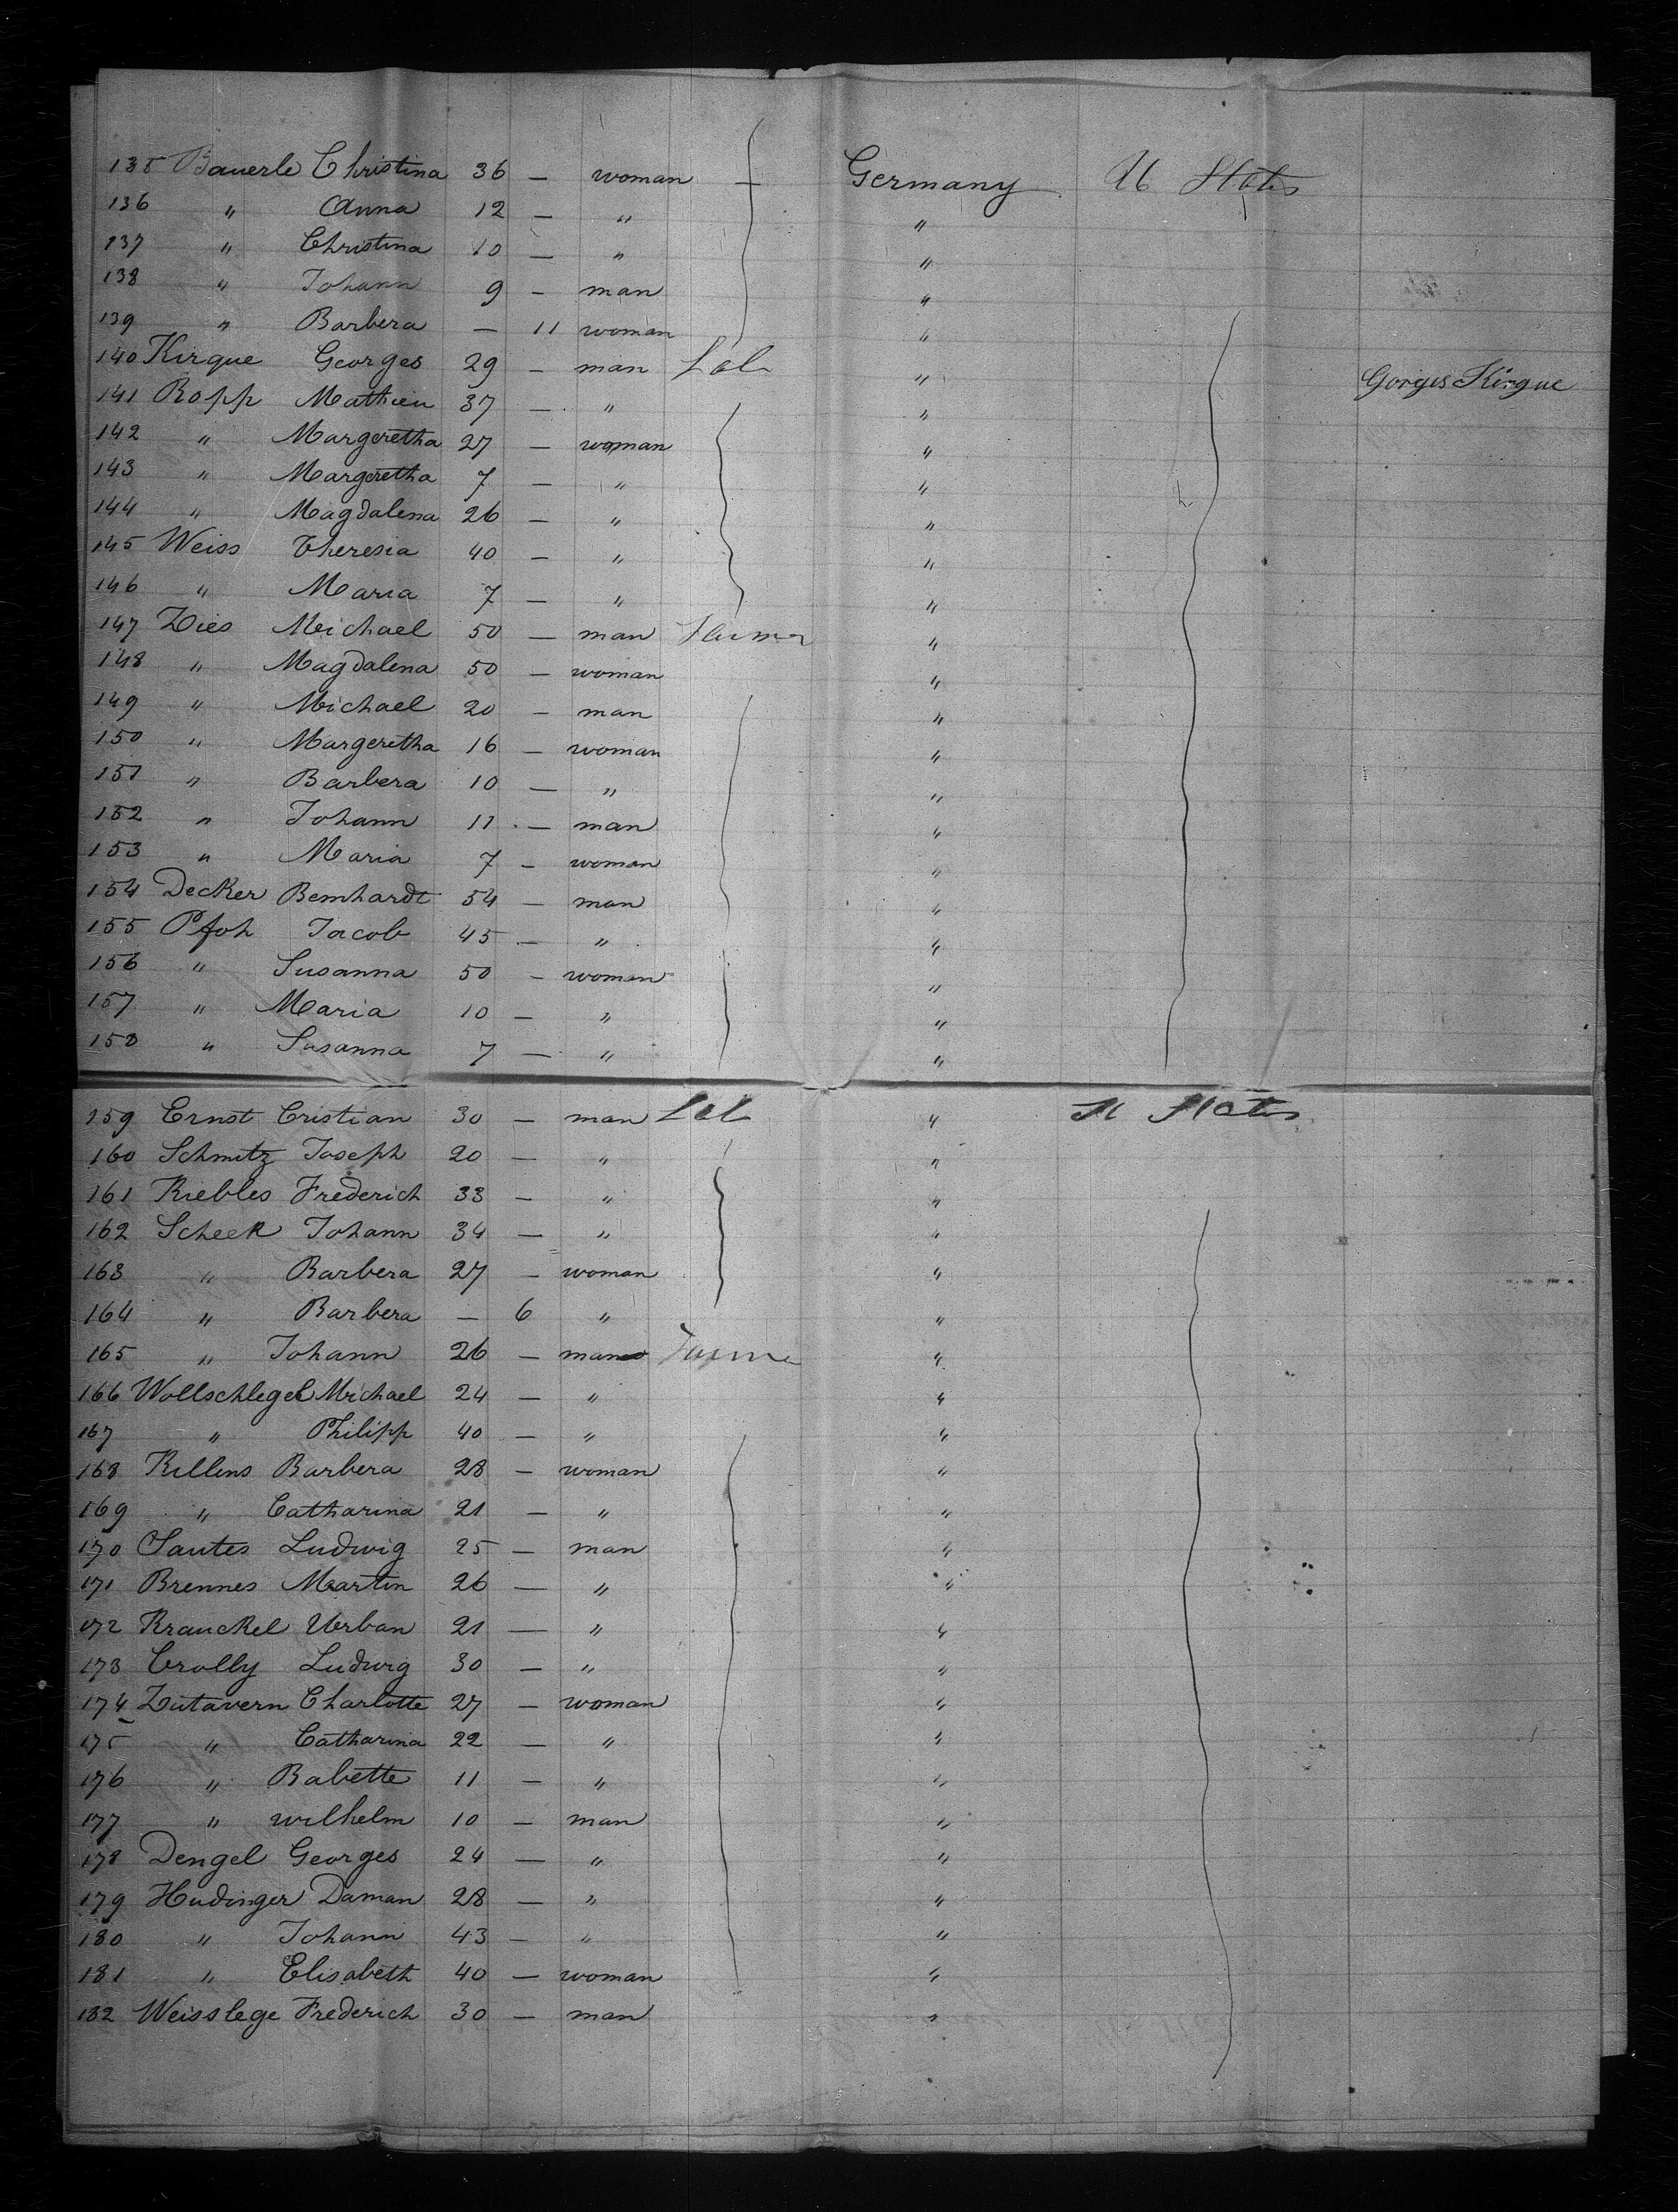 135 Bauerle Christina 36 — woman — Germany U States
136 " Anna 12 — " "
137 " Christina 10 — " "
138 " Johann 9 — man "
139 " Barbera — 11 woman "
140 Kirgue Georges 29 — man Lab " Gorges Kirgue
141 Ropp Mathieu 37 — " "
142 " Margeretha 27 — woman "
143 " Margeretha 7 — " "
144 " Magdalena 26 — " "
145 Weiss Theresia 40 — " "
146 " Maria 7 — " "
147 Dies Michael 50 — man "
148 " Magdalena 50 — woman "
149 " Michael 20 — man "
150 " Margeretha 16 — woman "
151 " Barbera 10 — " "
152 " Johann 11 — man "
153 " Maria 7 — woman "
154 Decker Bernhardt 54 — man "
155 Pfoh Jacob 45 — " "
156 " Susanna 50 — woman "
157 " Maria 10 — " "
158 " Susanna 7 — " "
159 Ernst Cristian 30 — man Lab " U States
160 Schmitz Joseph 20 — " "
161 Riebles Frederich 33 — " "
162 Scheek Johann 34 — " "
163 " Barbera 27 — woman "
164 " Barbera — 6 " "
165 " Johann 26 — man "
166 Wollschlegel Michael 24 — " "
167 " Philipp 40 — " "
168 Killens Barbera 28 — woman "
169 " Catharina 21 — " "
170 Santes Ludwig 25 — man "
171 Brennes Martin 26 — " "
172 Kranckel Urban 21 — " "
173 Crolly Ludwig 30 — " "
174 Zutavern Charlotte 27 — woman "
175 " Catharina 22 — " "
176 " Babette 11 — " "
177 " wilhelm 10 — man "
178 Dengel Georges 24 — " "
179 Hudinger Daman 28 — " "
180 " Johann 43 — " "
181 " Elisabeth 40 — woman "
182 Weisslege Frederich 30 — man "